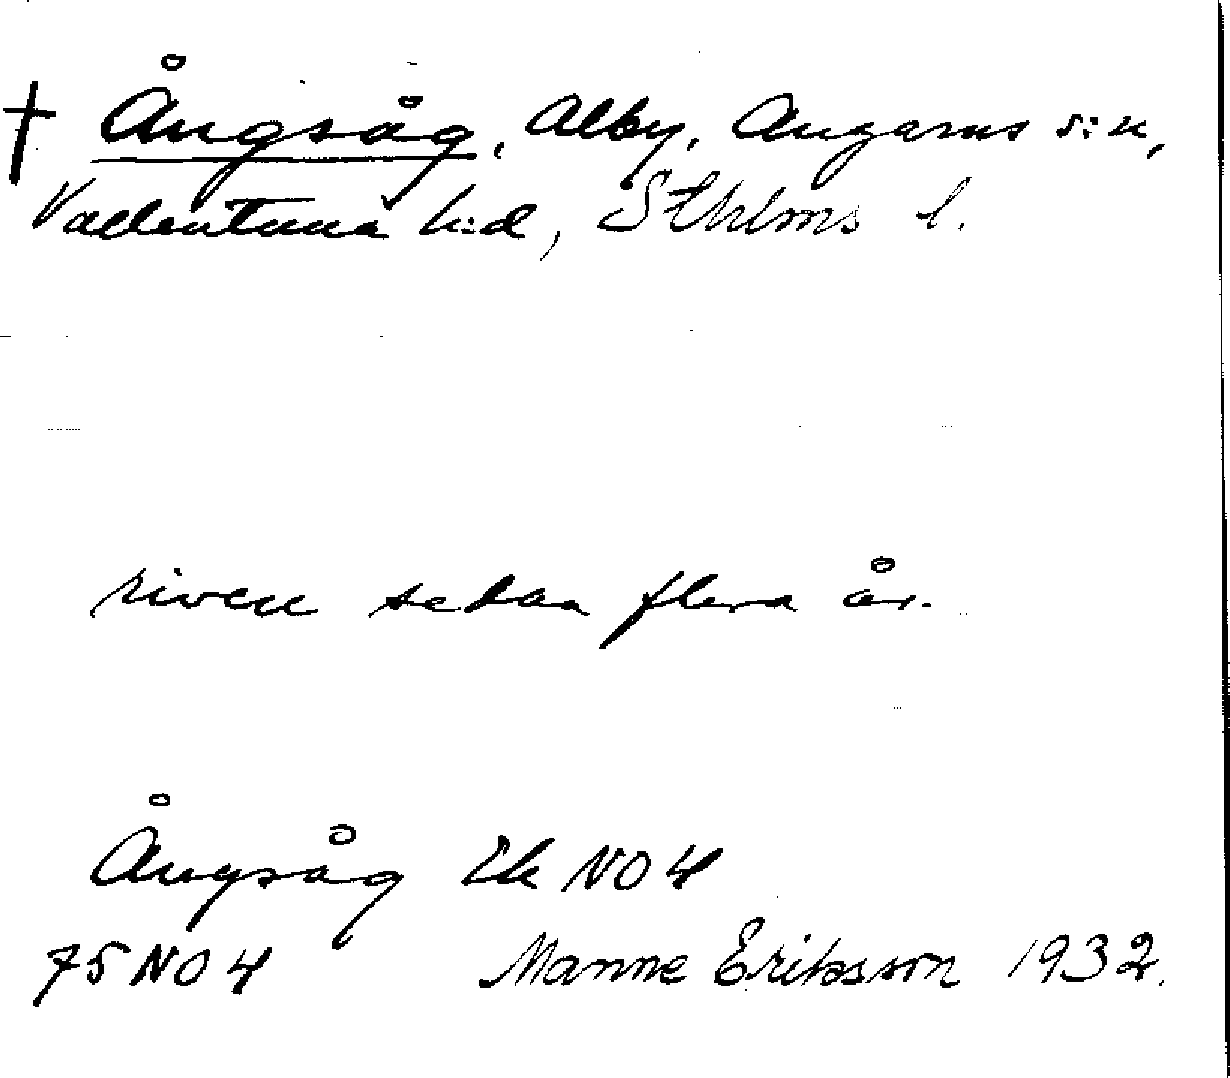 † Ångsåg, Alby, Angarns s:n,
Vallentuna h:d, Sthlms l.
riven sedan flera år.
Ångsåg Ek NO 4
75 NO 4 Manne Eriksson 1932.